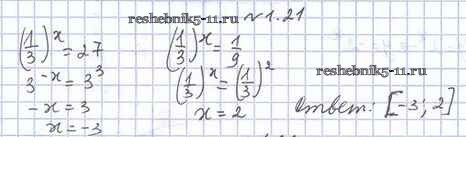 reshebnik5-11.ru
№1.21
(1/3)^x = 27
3^-x = 3^3
-x = 3
x = -3
(1/3)^x = 1/9
(1/3)^x = (1/3)^2
x = 2
reshebnik5-11.ru
Ответ: [-3; 2]